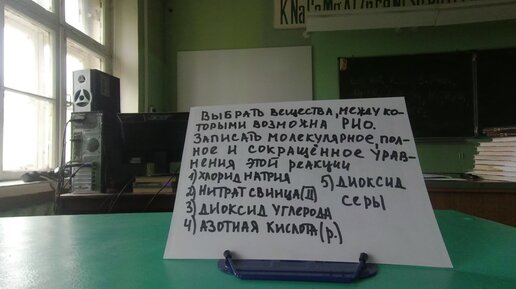 ВЫБРАТЬ ВЕЩЕСТВА, МЕЖДУ КО-
ТОРЫМИ ВОЗМОЖНА РИО.
ЗАПИСАТЬ МОЛЕКУЛЯРНОЕ, ПОЛ-
НОЕ И СОКРАЩЁННОЕ УРАВ-
НЕНИЯ ЭТОЙ РЕАКЦИИ
1) ХЛОРИД НАТРИЯ
2) НИТРАТ СВИНЦА (II)
3) ДИОКСИД УГЛЕРОДА
4) АЗОТНАЯ КИСЛОТА (р.)
5) ДИОКСИД
СЕРЫ